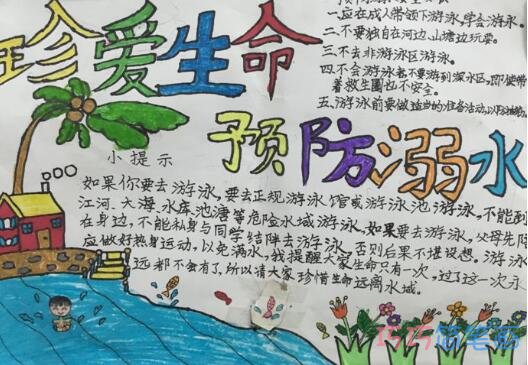 珍爱生命
一、应在成人带领下游泳，学会游泳。
二、不要独自在河边、山塘边玩耍。
三、不去非游泳区游泳。
四、不会游泳者不要游到深水区，即使带
着救生圈也不安全。
五、游泳前要做适当的准备活动，以防抽筋。
预防溺水
小提示
如果你要去游泳，要去正规游泳馆或游泳池游泳，不能到
江河、大海、水库、池塘等危险水域游泳，如果要去游泳，父母先陪
在身边，不能私身与同学结阵去游泳，否则后果不堪设想。游泳
应做好热身运动，以免满水，我提醒大家生命只有一次，过了这一次永
远都不会有了，所以请大家珍惜生命远离水域。